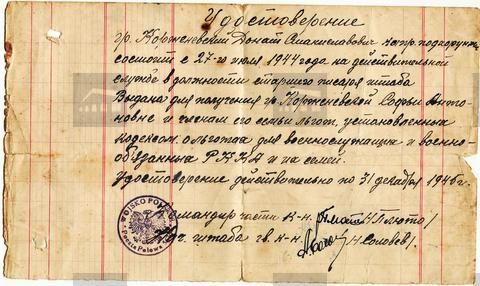 Удостоверение
гр. Корженевский Донат Станиславович
состоит с 27-го июля 1944 года на действительной
службе в должности старшего писаря штаба
Выдана для получения гр. Корженевской Софьи Анто-
новне и членам его семьи льгот, установленных
Кодексом о льготах для военнослужащих и военно-
обязанных РККА и их семей.
Удостоверение действительно по 31 декабря 1945 г.
Командир части п-к. /Плюто/
Нач. штаба гв. к-н /Н. Соловев/.
WOJSKO POLSKIE
Poczta Polowa